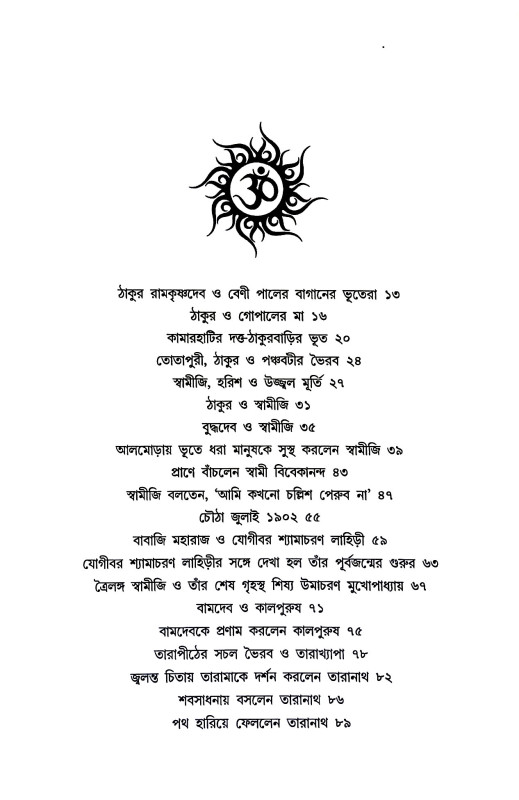 ॐ
ঠাকুর রামকৃষ্ণদেব ও বেণী পালের বাগানের ভূতেরা ১৩
ঠাকুর ও গোপালের মা ১৬
কামারহাটির দত্ত-ঠাকুরবাড়ির ভূত ২০
তোতাপুরী, ঠাকুর ও পঞ্চবটীর ভৈরব ২৪
স্বামীজি, হরিশ ও উজ্জ্বল মূর্তি ২৭
ঠাকুর ও স্বামীজি ৩১
বুদ্ধদেব ও স্বামীজি ৩৫
আলমোড়ায় ভূতে ধরা মানুষকে সুস্থ করলেন স্বামীজি ৩৯
প্রাণে বাঁচলেন স্বামী বিবেকানন্দ ৪৩
স্বামীজি বলতেন, ‘আমি কখনো চল্লিশ পেরুব না’ ৪৭
চৌঠা জুলাই ১৯০২ ৫৫
বাবাজি মহারাজ ও যোগীবর শ্যামাচরণ লাহিড়ী ৫৯
যোগীবর শ্যামাচরণ লাহিড়ীর সঙ্গে দেখা হল তাঁর পূর্বজন্মের গুরুর ৬৩
ত্রৈলঙ্গ স্বামীজি ও তাঁর শেষ গৃহস্থ শিষ্য উমাচরণ মুখোপাধ্যায় ৬৭
বামদেব ও কালপুরুষ ৭১
বামদেবকে প্রণাম করলেন কালপুরুষ ৭৫
তারাপীঠের সচল ভৈরব ও তারাখ্যাপা ৭৮
জ্বলন্ত চিতায় তারামাকে দর্শন করলেন তারানাথ ৮২
শবসাধনায় বসলেন তারানাথ ৮৬
পথ হারিয়ে ফেললেন তারানাথ ৮৯